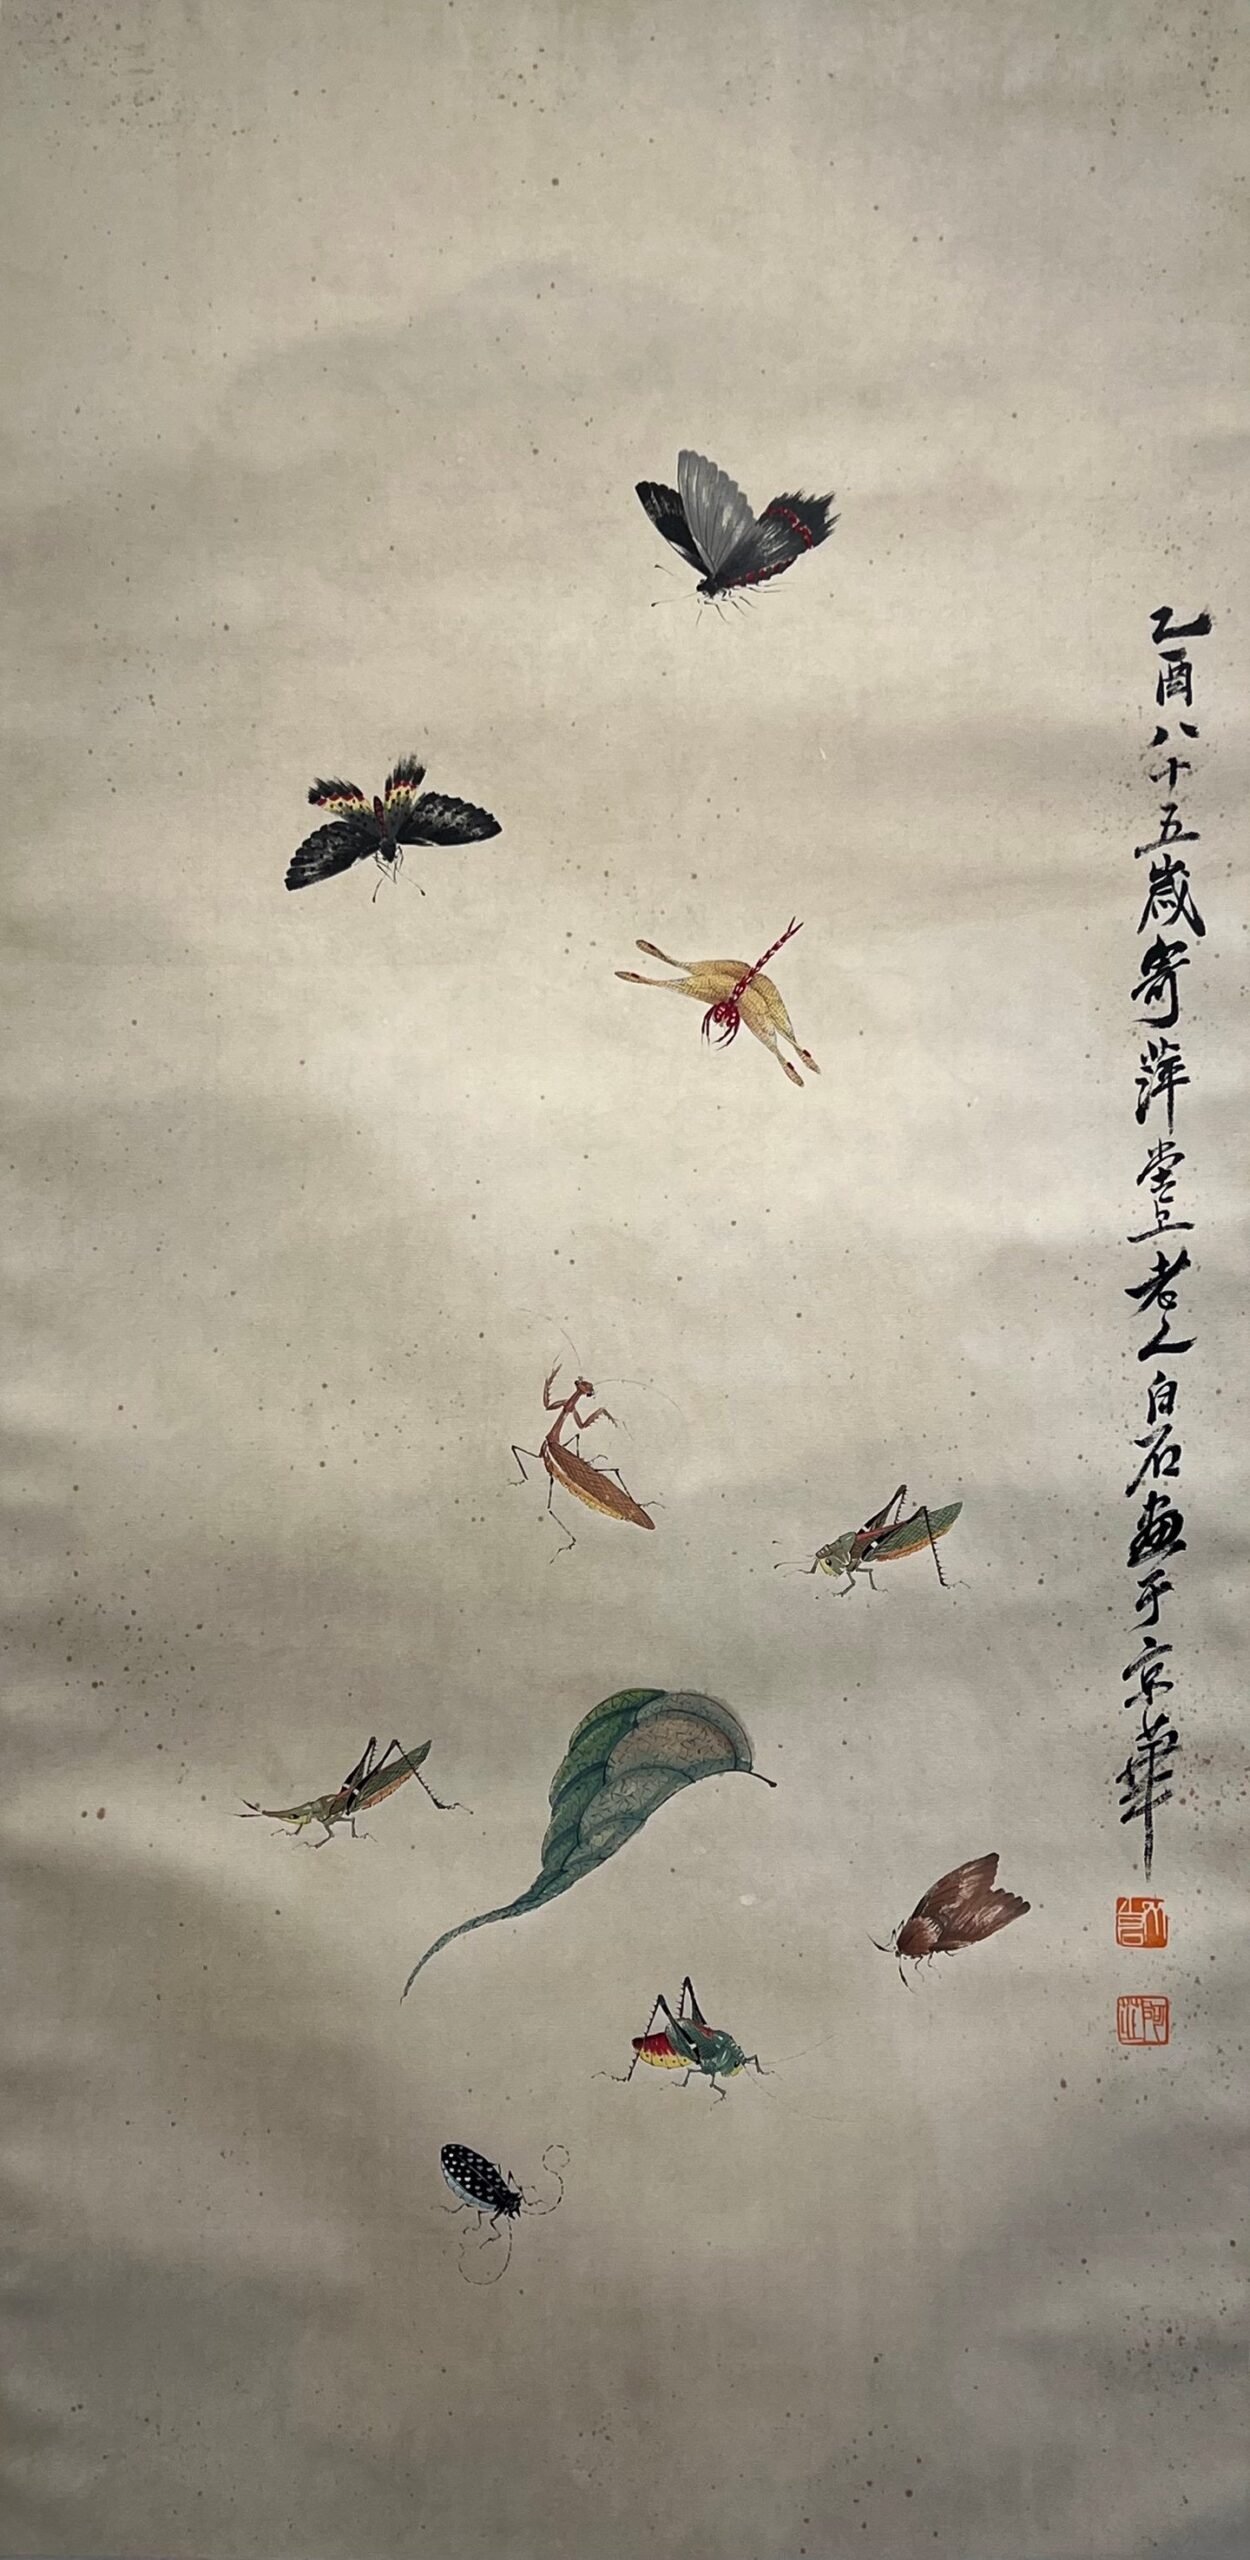 乙酉八十五歲寄萍堂上老人白石畫于京華
木人
阿芝